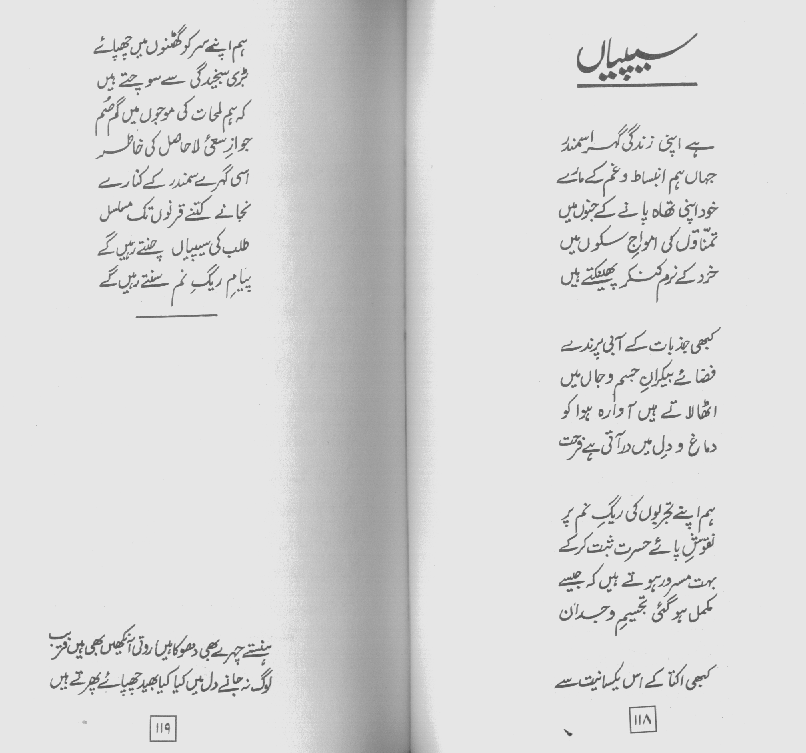 سیپیاں
ہے اپنی زندگی گہرا سمندر
جہاں ہم انبساط و غم کے مارے
خود اپنی تھاہ پانے کے جنوں میں
تمنّاؤں کی امواجِ سکوں میں
خرد کے نرم کنکر پھینکتے ہیں
کبھی جذبات کے آبی پرندے
فضائے بیکرانِ جسم و جاں میں
اٹھا لاتے ہیں آوارہ ہوا کو
دماغ و دل میں در آتی ہے فرحت
ہم اپنے تجربوں کی ریگِ نم پر
نقوشِ پائے حسرت ثبت کر کے
بہت مسرور ہوتے ہیں کہ جیسے
مکمل ہو گئی تجسیمِ وجدان
کبھی اکتا کے اس یکسانیت سے
۱۱۸
ہم اپنے سر کو گھٹنوں میں چھپائے
بڑی سنجیدگی سے سوچتے ہیں
کہ ہم لمحات کی موجوں میں گم صُم
جوازِ سعیٔ لاحاصل کی خاطر
اسی گہرے سمندر کے کنارے
نجانے کتنے قرنوں تک مسلسل
طلب کی سیپیاں چنتے رہیں گے
پیامِ ریگِ نم سنتے رہیں گے
ہنستے چہرے بھی دھوکا ہیں روتی آنکھیں بھی ہیں فریب
لوگ نہ جانے دل میں کیا کیا بھید چھپائے پھرتے ہیں
۱۱۹